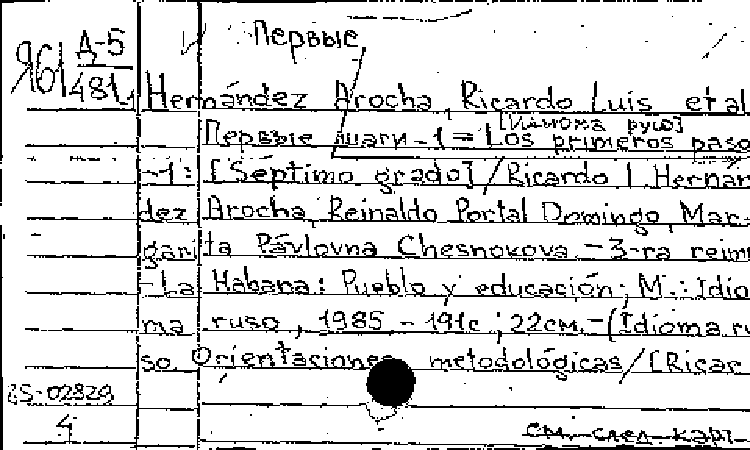 Я61 Д-5
481
Первые
Hernández Arocha, Ricardo Luis et al
[Idioma ruso]
Первые шаги - 1 = Los primeros paso
-1: [Séptimo grado] / Ricardo L Hernan
dez Arocha, Reinaldo Portal Domingo, Mar-
garita Pávlovna Chesnokova. - 3-ra reim
- La Habana: Pueblo y educación; M.: Idio
ma ruso, 1985. - 191с; 22см. - (Idioma ru
so. Orientaciones metodológicas / [Ricar
85-02829
4
см. след. карт.